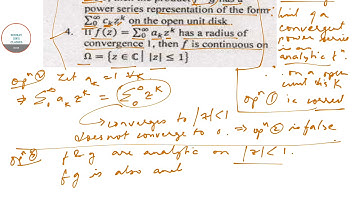 power series representation of the form
∑₀^∞ cₖzᵏ on the open unit disk
4. If f(z) = ∑₀^∞ aₖzᵏ has a radius of
convergence 1, then f is continuous on
Ω = {z ∈ ℂ | |z| ≤ 1}
of a
convergent
power series
is an
analytic fⁿ.
on a open
unit disk
opⁿ ① is correct
opⁿ ④ Let aₖ = 1 ∀k
⇒ ∑₀^∞ aₖzᵏ = ∑₀^∞ zᵏ
→ converges to |z|<1
does not converge to 0. ⇒ opⁿ ④ is false
opⁿ ③ f & g are analytic on |z|<1.
fg is also anal